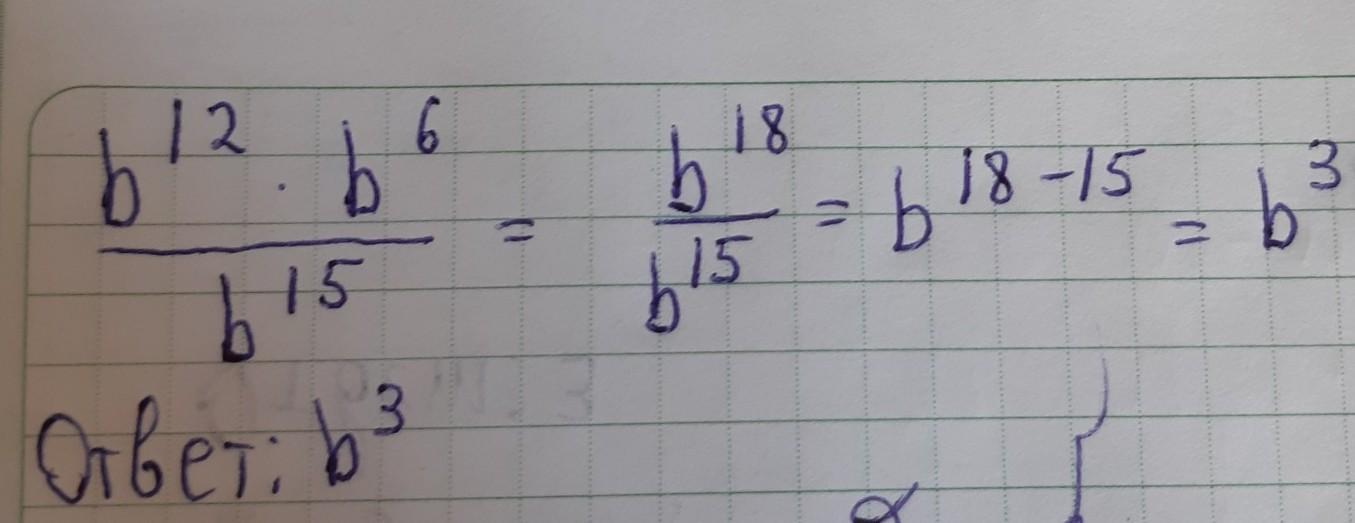 b¹² · b⁶ / b¹⁵ = b¹⁸ / b¹⁵ = b¹⁸⁻¹⁵ = b³
Ответ: b³